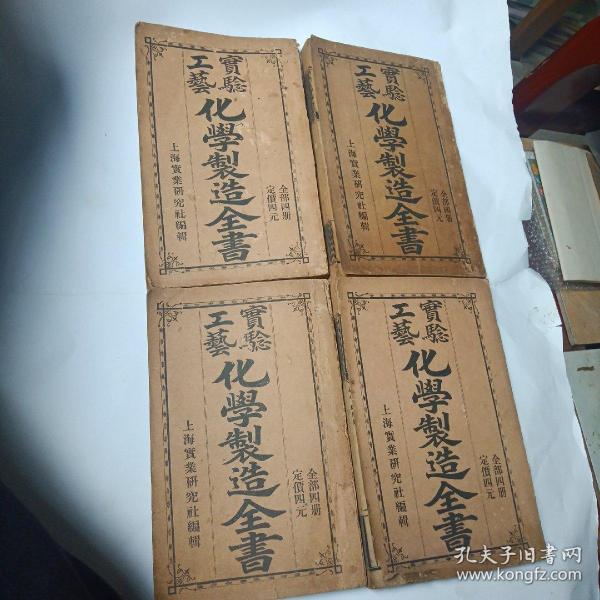 實驗
工藝
化學製造全書
全部四册
定價四元
上海實業研究社編輯
實驗
工藝
化學製造全書
全部四册
定價四元
上海實業研究社編輯
實驗
工藝
化學製造全書
全部四册
定價四元
上海實業研究社編輯
實驗
工藝
化學製造全書
全部四册
定價四元
上海實業研究社編輯
孔夫子旧书网
www.kongfz.com